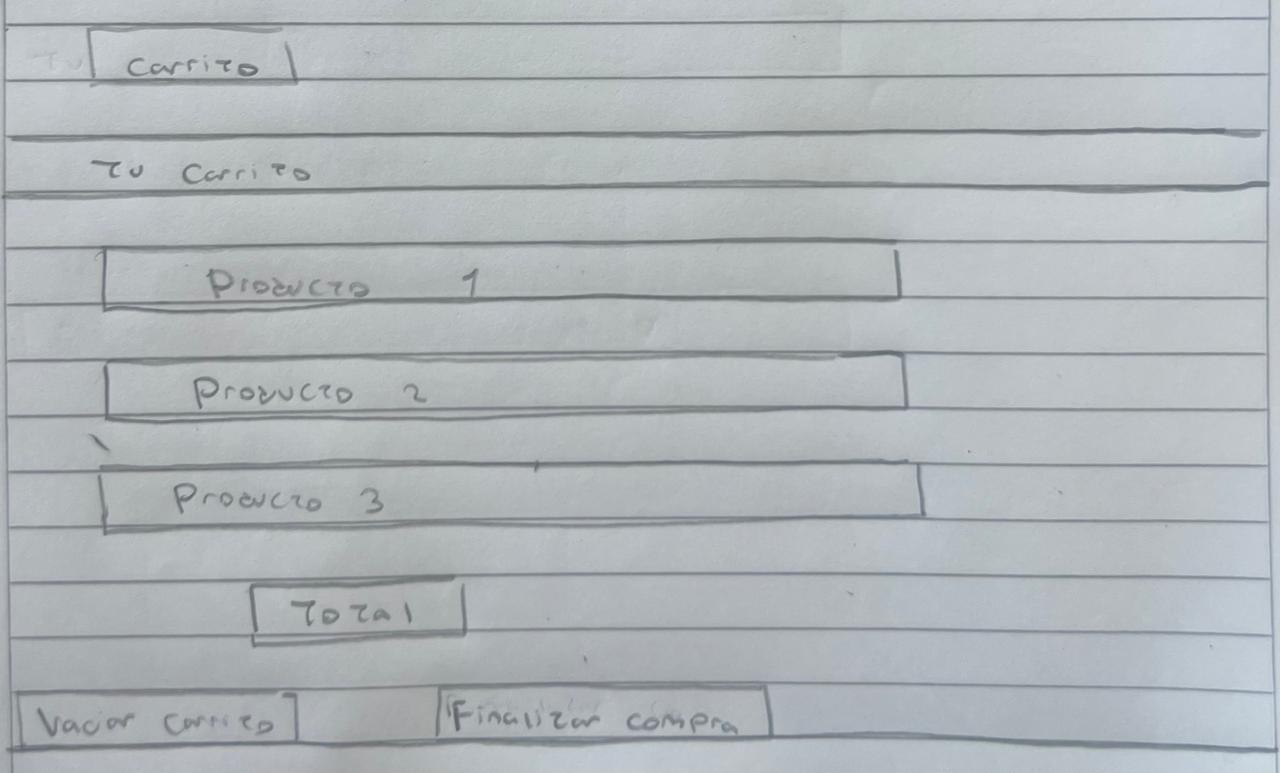 Carrito
Tu Carrito
Producto 1
Producto 2
Producto 3
Total
Vaciar Carrito
Finalizar compra